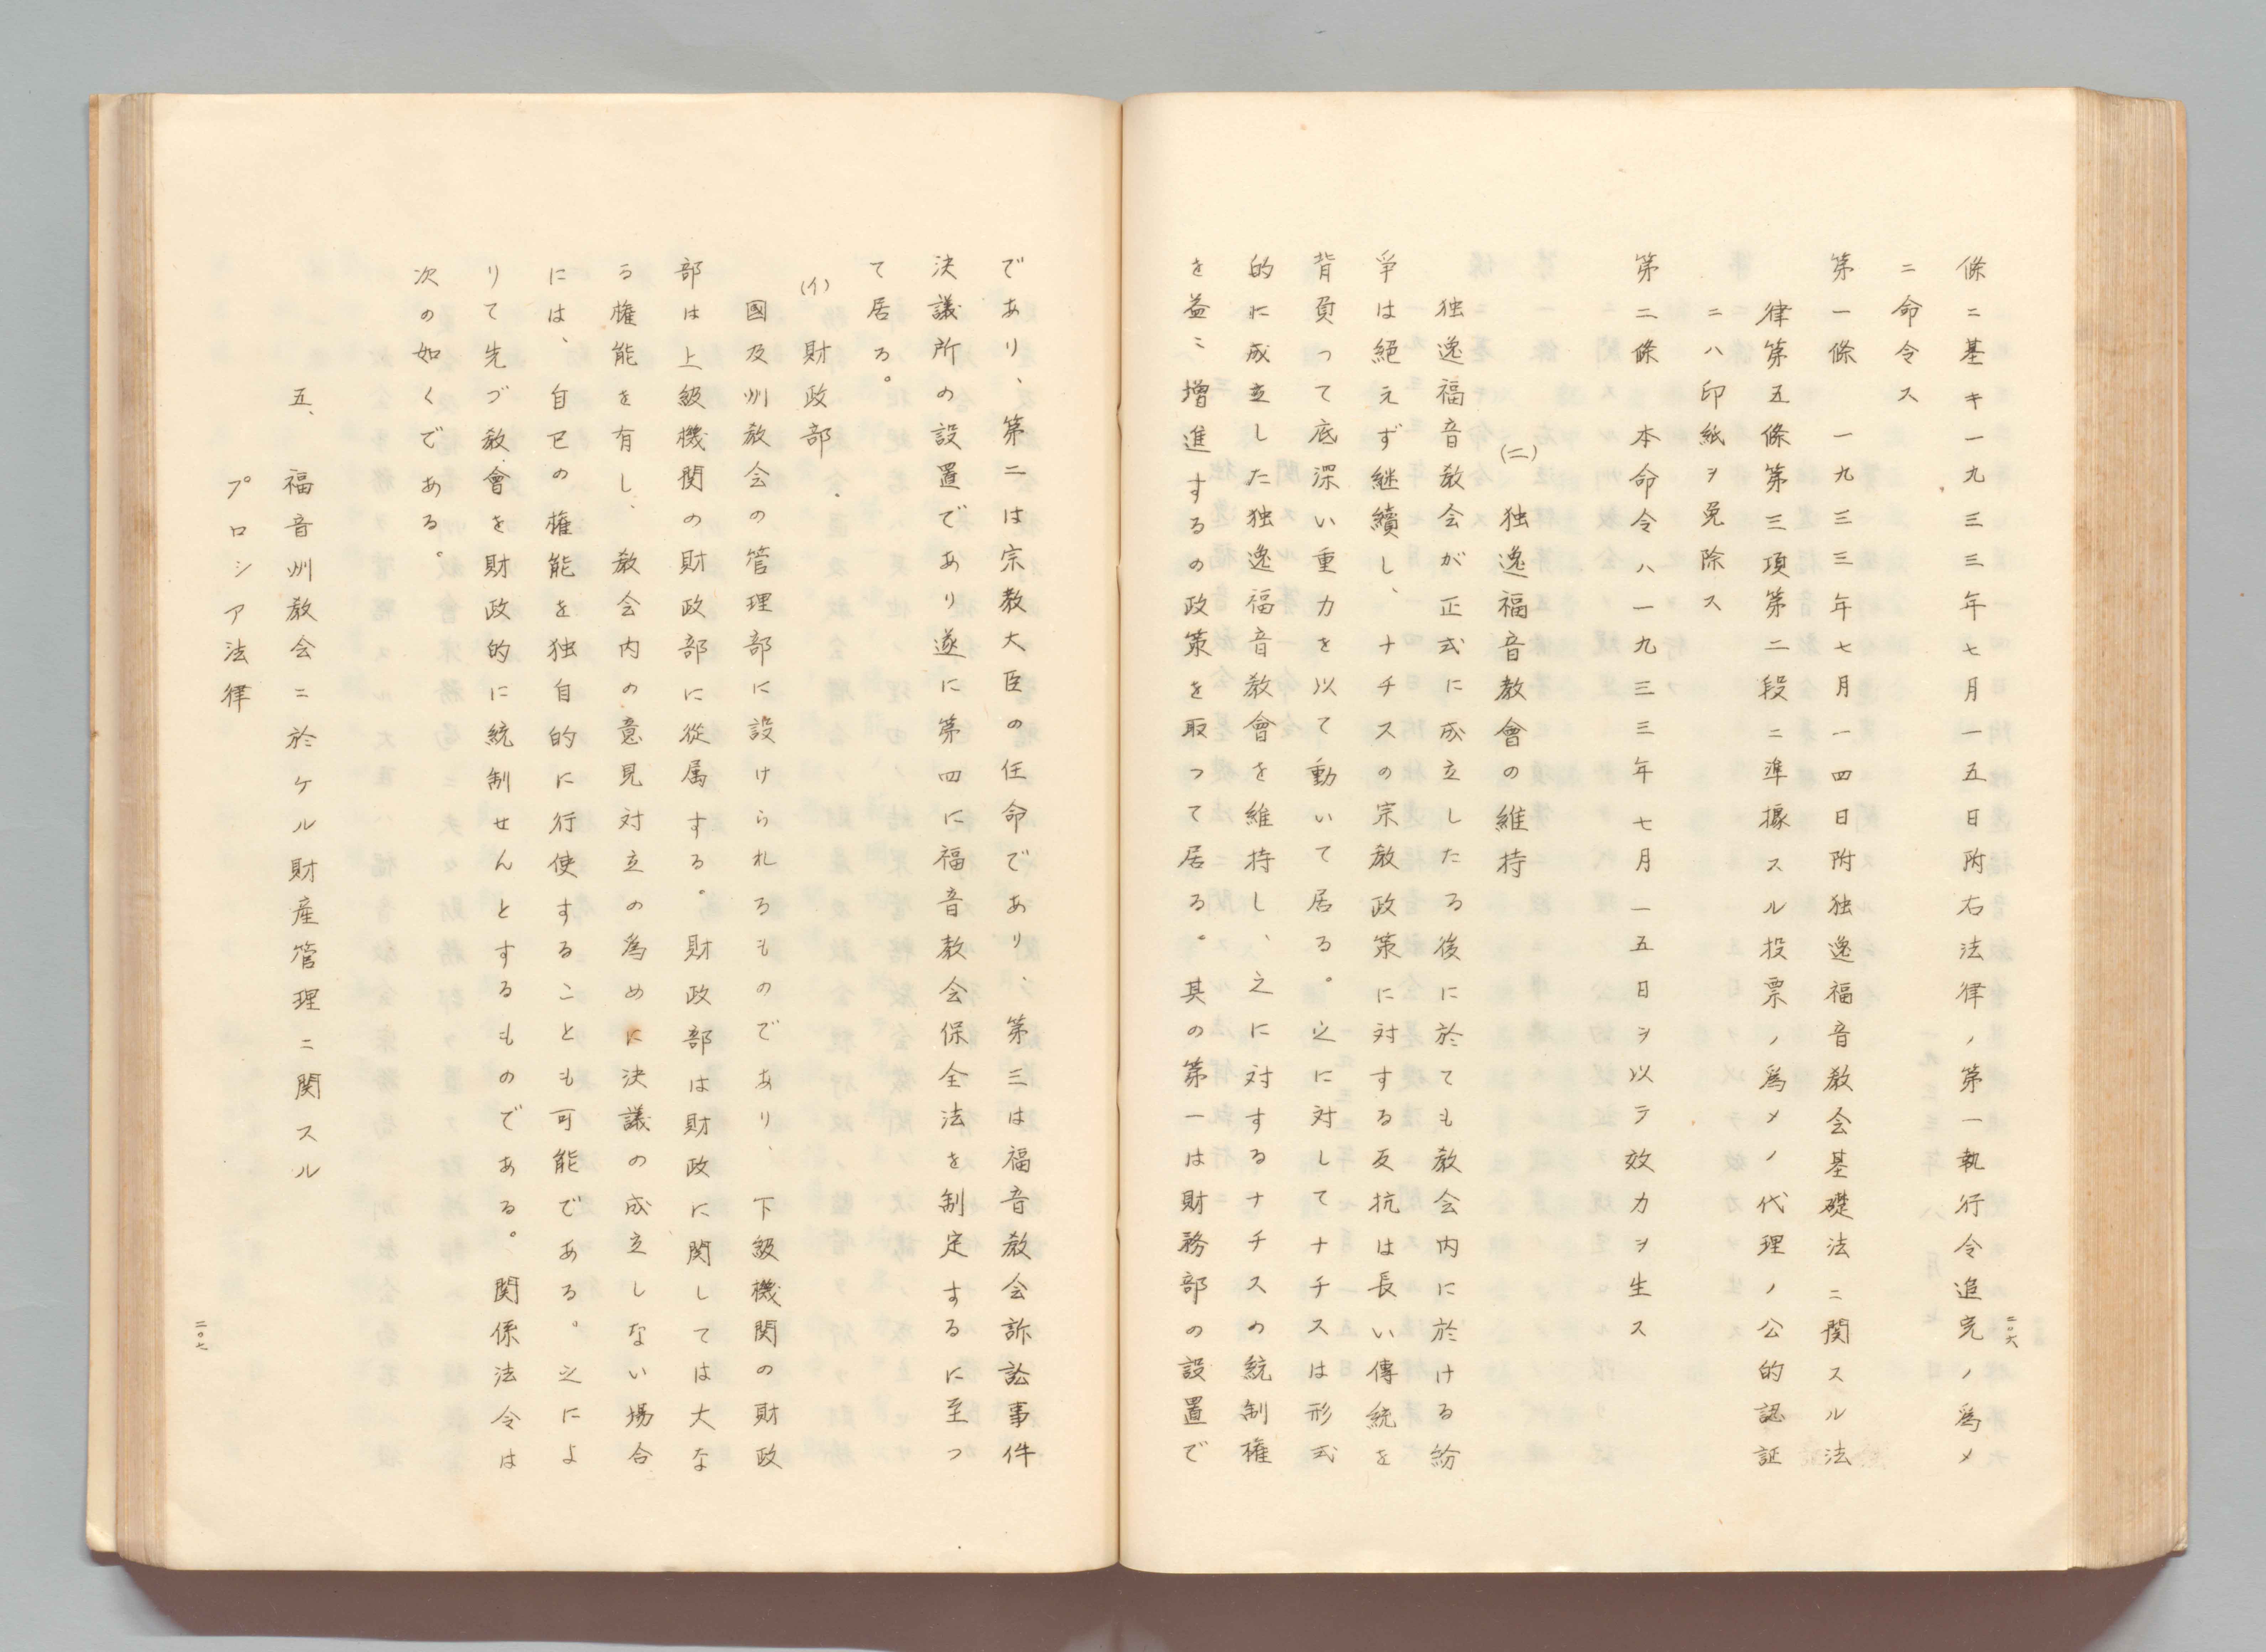 條ニ基キ一九三三年七月一五日附右法律ノ第一執行令追完ノ爲メ
ニ命令ス
第一條　一九三三年七月一四日附独逸福音教会基礎法ニ関スル法
律第五條第三項第二段ニ準據スル投票ノ爲メノ代理ノ公的認証
ニハ印紙ヲ免除ス
第二條　本命令ハ一九三三年七月一五日ヲ以テ效力ヲ生ス
(二)　独逸福音教會の維持
独逸福音教会が正式に成立したる後に於ても教会内に於ける紛
爭は絕えず継續し、ナチスの宗教政策に対する反抗は長い傳統を
背負って底深い重力を以て動いて居る。之に対してナチスは形式
的に成立した独逸福音教會を維持し、之に対するナチスの統制権
を益〻増進するの政策を取って居る。其の第一は財務部の設置で
二〇六
であり、第二は宗教大臣の任命であり、第三は福音教会訴訟事件
決議所の設置であり遂に第四に福音教会保全法を制定するに至つ
て居る。
(イ)　財政部
國及州教会の管理部に設けられるものであり、下級機関の財政
部は上級機関の財政部に從属する。財政部は財政に関しては大な
る権能を有し、教会内の意見対立の爲めに決議の成立しない場合
には、自己の権能を独自的に行使することも可能である。之によ
りて先づ教會を財政的に統制せんとするものである。関係法令は
次の如くである。
五、福音州教会ニ於ケル財産管理ニ関スル
プロシア法律
二〇七